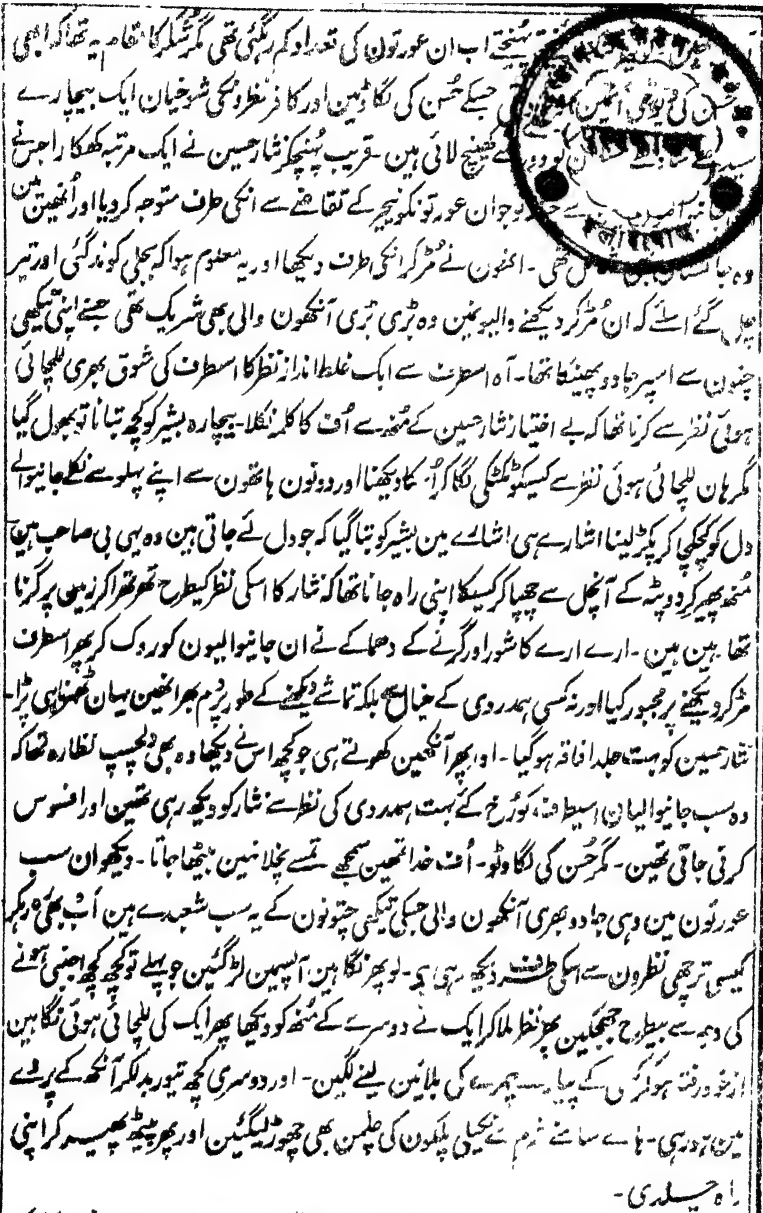 پہنچتے اب ان عورتون کی تعداد کم رہگئی تھی مگر شکر کا مقام یہ تھا کہ ابھی
حسن کی جسکے حُسن کی لگاوٹین اور کافر نظرونکی شوخیان ایک بیچارے
کھینچ لائی ہین ۔ قریب پہنچکر نثار حسین نے ایک مرتبہ کھکارا جسنے
نوجوان عورتونکو نیچر کے تقاضے سے انکی طرف متوجہ کردیا اور اُنھین مین
وہ تھی ۔ انھون نے مُڑ کر انکی طرف دیکھا اور یہ معلوم ہوا کہ بجلی کوند گئی اور تیر
چل گئے اسلئے کہ ان مُڑ کر دیکھنے والیونمین وہ بڑی بڑی آنکھون والی بھی شریک تھی جسنے اپنی تیکھی
چتون سے اسپر جادو پھینکا تھا ۔ آہ اسطرف سے ایک غلط انداز نظر کا اسطرف کی شوق بھری للچائی
ہوئی نظر سے کرنا تھا کہ بے اختیار نثار حسین کے مُنھ سے اُف کا کلمہ نکلا ۔ بیچارہ بشیر کو کچھ بتانا تو بھول گیا
مگر ہان للچائی ہوئی نظر سے کسیکو ٹکٹکی لگا کر دیکھنا اور دونون ہاتھون سے اپنے پہلو سے نکلے جانیوالے
دل کو کچکچا کر پکڑ لینا اشارے ہی اشارے مین بشیر کو بتا گیا کہ جو دل لئے جاتی ہین وہ یہی بی صاحب ہین
مُنھ پھیر کر دوپٹہ کے آنچل سے چھپا کر کسیکا اپنی راہ جانا تھا کہ نثار کا اسکی نظر کیطرح تھرتھرا کر زمین پر گرنا
تھا ہین ہین ۔ ارے ارے کا شور اور گرنے کے دھماکے نے ان جانیوالیون کو روک کر پھر اسطرف
مڑ کر دیکھنے پر مجبور کیا اور نہ کسی ہمدردی کے خیال سے بلکہ تماشے دیکھنے کے طور پر دم بھر انھین یہان ٹھہرنا ہی پڑا ۔
نثار حسین کو بہت جلد افاقہ ہوگیا ۔ اور پھر آنکھین کھولتے ہی جو کچھ اس نے دیکھا وہ بھی دلچسپ نظارہ تھا کہ
وہ سب جانیوالیان اسیطرف کو رُخ کئے بہت ہمدردی کی نظر سے نثار کو دیکھ رہی تھین اور افسوس
کرتی جاتی تھین ۔ مگر حُسن کی لگاوٹو ۔ اُف خدا تمھین سمجھے تمسے نچلا نہین بیٹھا جاتا ۔ دیکھو ان سب
عورتون مین وہی جادو بھری آنکھون والی جسکی تیکھی چتونون کے یہ سب شعبدے ہین اُپ بھی رہ رہکر
کیسی ترچھی نظرون سے اسکی طرف دیکھ رہی ہے ۔ لو پھر نگاہین آپسمین لڑ گئین جو پہلے تو کچھ کچھ اجنبی ہونے
کی وجہ سے بیطرح جھجکین پھر نظر ملا کر ایک نے دوسرے کے مُنھ کو دیکھا پھر ایک کی للچائی ہوئی نگاہین
ازخود رفتہ ہو کر اُس کے پیارے چہرے کی بلائین لینے لگین ۔ اور دوسری کچھ تیور بدلکر آنکھ کے پردے
مین ہو رہی ۔ ہاے سامنے شرم نے نکیلی پلکون کی چلمن بھی چھوڑ لیگئین اور پھر پیٹھ پھیر کر اپنی
راہ چلدی ۔